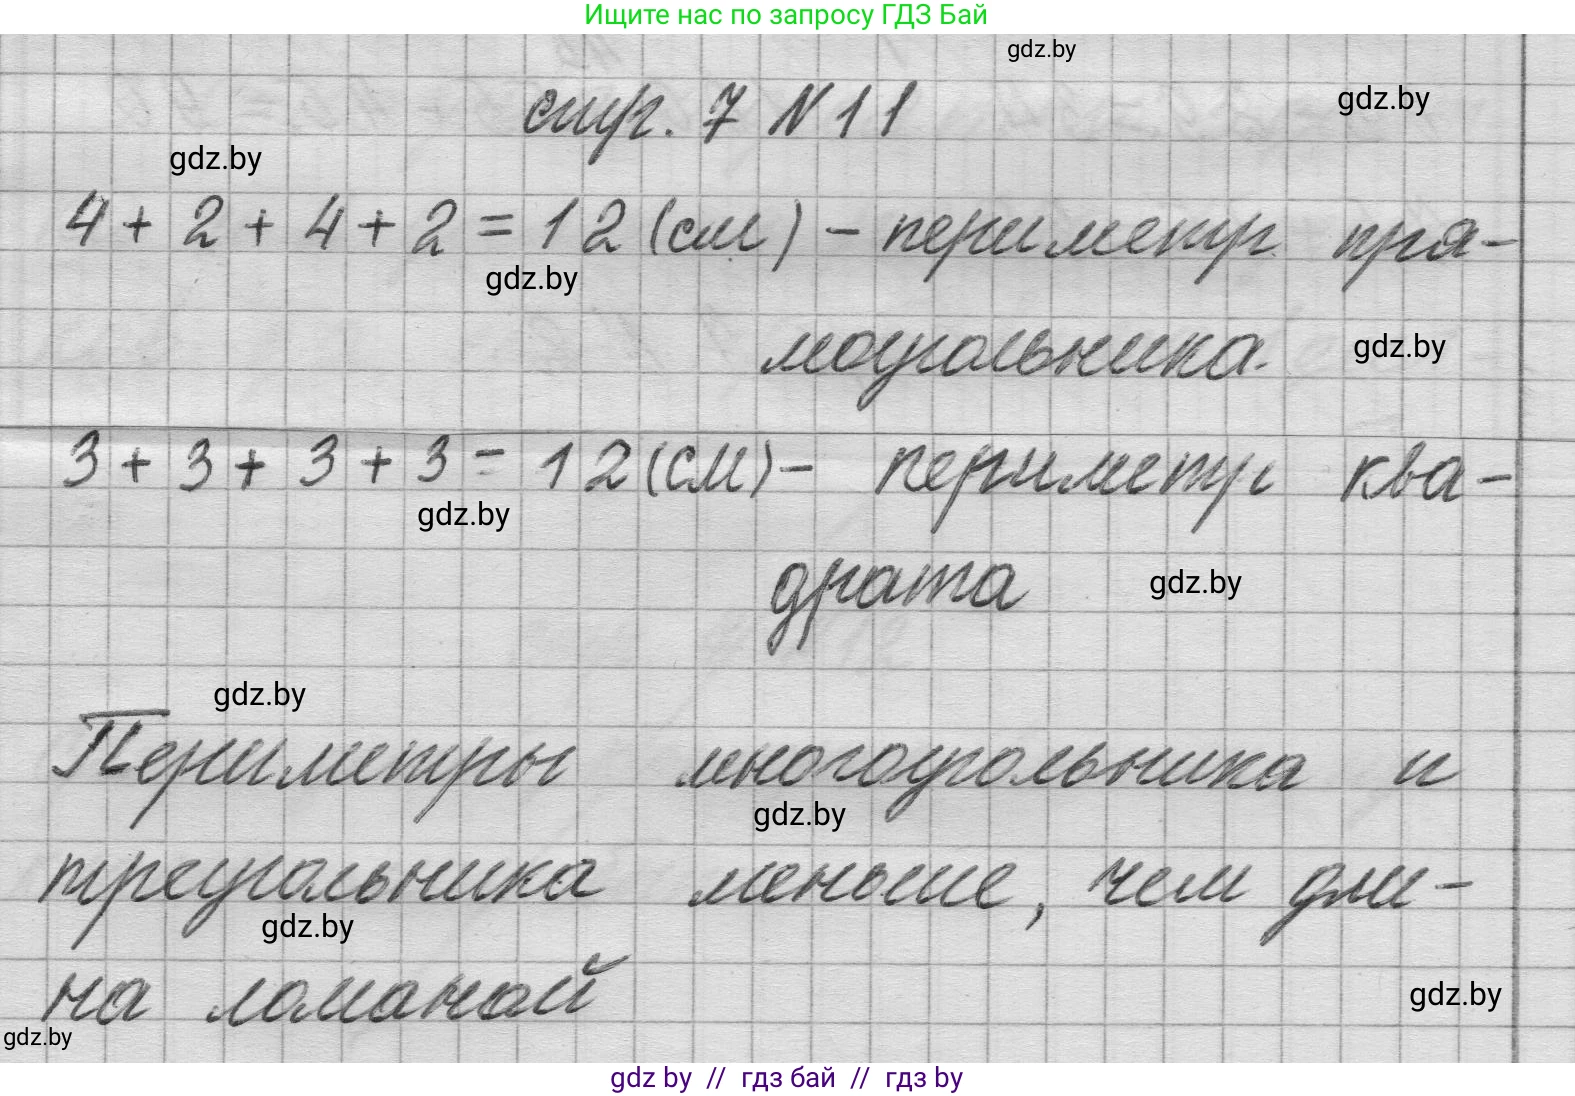 Ищите нас по запросу ГДЗ Бай
gdz.by
стр. 7 N 11
gdz.by
gdz.by
4 + 2 + 4 + 2 = 12 (см) - периметр пря-
gdz.by
моугольника.
gdz.by
3 + 3 + 3 + 3 = 12 (см) - периметр ква-
gdz.by
драта
gdz.by
gdz.by
Периметры многоугольника и
gdz.by
треугольника меньше, чем дли-
gdz.by
на ломаной
gdz.by
gdz.by
gdz by // гдз бай // гдз by